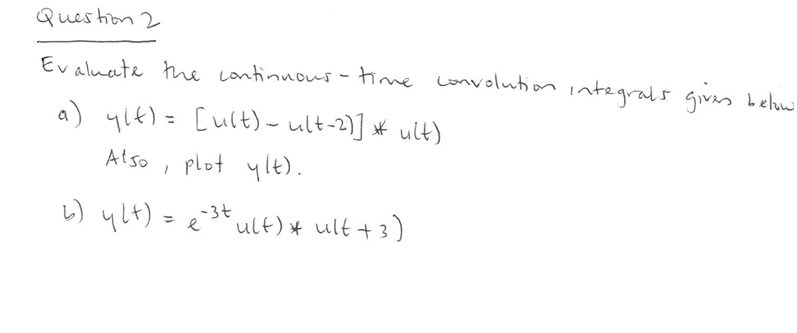 Question 2
Evaluate the continuous-time convolution integrals given below
a) y(t) = [u(t) - u(t-2)] * u(t)
Also, plot y(t).
b) y(t) = e^{-3t} u(t) * u(t+3)